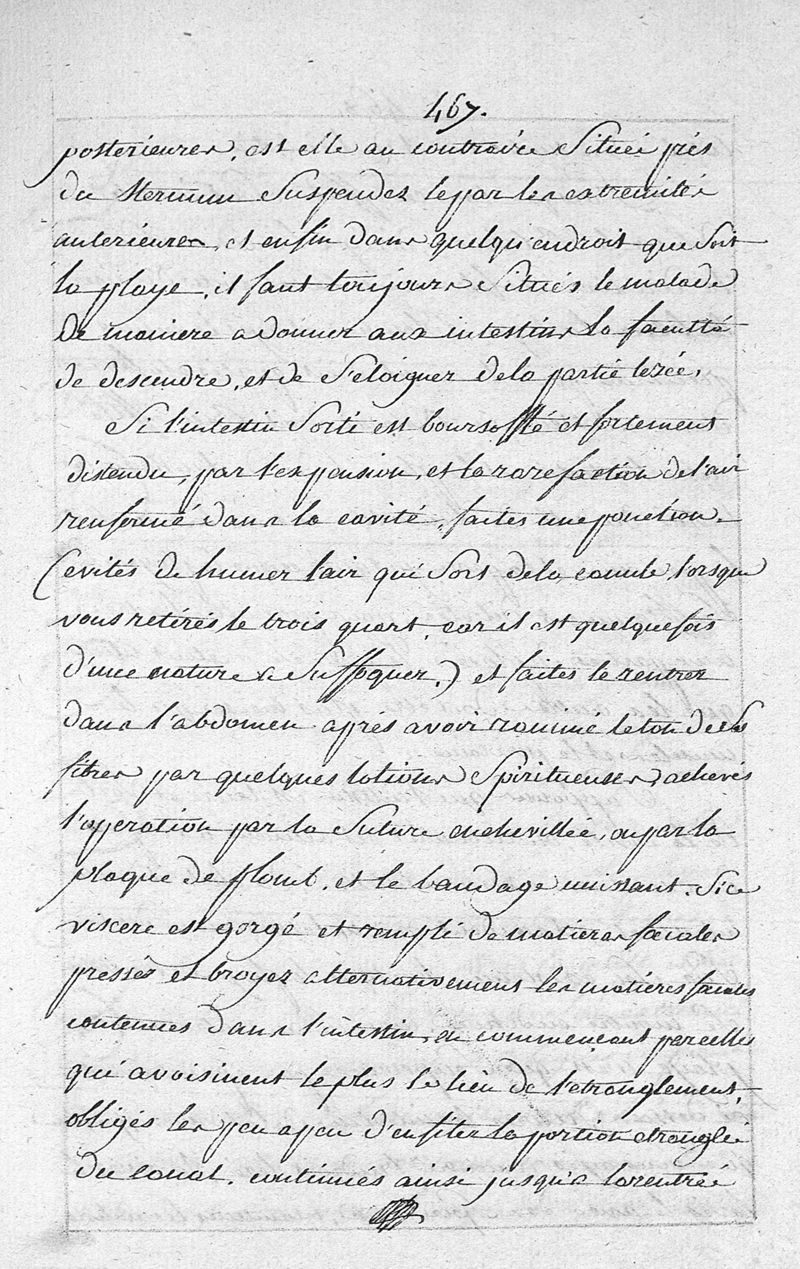 467.
posterieures, est elle au contraire Située prés
du sternum Suspendez le par les extremités
anterieures, et enfin dans quelqu'endroit que Soit
la playe, il faut toujours Situés le malade
De maniere a donner aux intestins la faculté
de descendre, et de S'eloigner de la partie lezée,
Si l'intestin Sorti est boursofflé et fortement
distendu, par l'expension, et la rarefaction de l'air
renfermé dans la cavité, faites une ponction
(evités de humer l'air qui Sort de la canule, lorsque
vous retirés le trois quart, car il est quelquefois
d'une nature a Suffoquer.) et faites le rentrer
dans l'abdomen apres avoir ranimé le ton de Ses
fibres par quelques lotions Spiritueuses, achevés
l'operation par la Suture enchevillée, ou par la
plaque de plomb, et le bandage unissant. Si ce
viscere est gorgé et rempli de matieres fœcales
pressés et broyez alternativement les matieres fœcales
contenues dans l'intestin, en commençant par celles
qui avoisinent le plus le lieu de l'etranglement,
obligés les peu a peu d'enfiler la portion etranglée
Du canal, continués ainsi jusqu'a la rentrée